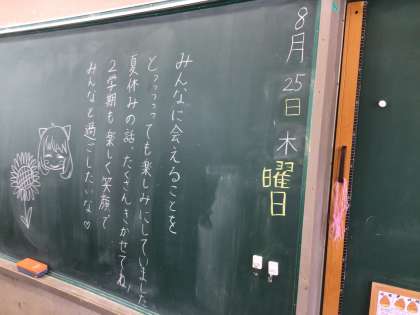 8月25日木曜日
みんなに会えることを
とっっっっても楽しみにしていました
夏休みの話、たくさんきかせてね!
2学期も楽しく笑顔で
みんなと過ごしたいな♡